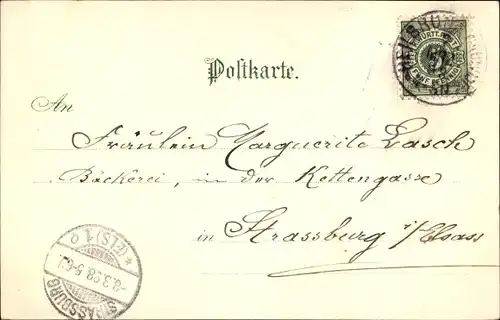 HEILBRONN
K. WÜRTT. POST
5
Postkarte.
An
Fräulein Marguerite Lasch
Bäckerei, in der Kettengasse
in Strassburg i/Elsass
STRASSBURG
-8.3.98.5-6N.
*(ELS)1.